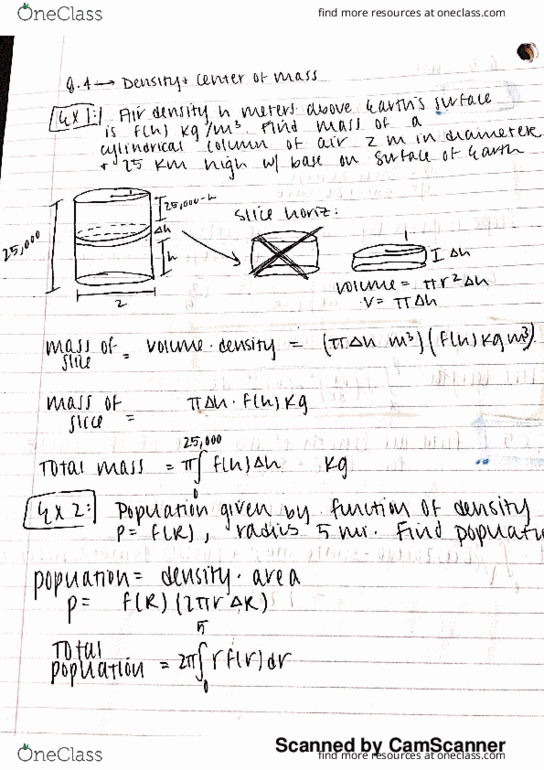 OneClass
find more resources at oneclass.com
8.4 → Density + center of mass
Ex 1: Air density h meters above Earth's surface
is f(h) kg/m³. Find mass of a
cylindrical column of air 2 m in diameter
+ 25 km high w/ base on surface of Earth
25,000
25,000-h
Δh
h
2
slice horiz:
1
Δh
volume = πr²Δh
V = πΔh
mass of slice = volume · density = (πΔh m³)(f(h) kg m³)
mass of slice = πΔh · f(h) kg
Total mass = π∫₀^25,000 f(h)Δh kg
Ex 2: Population given by function of density
P = f(R), radius 5 mi. Find populatio
population = density · area
P = f(R)(2πrΔR)
Total population = 2π∫₀^5 r f(r) dr
Scanned by CamScanner
OneClass
find more resources at oneclass.com